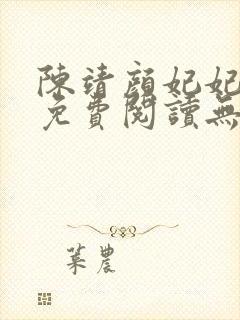 陳靖顏妃妃
免費閱讀無
葉農